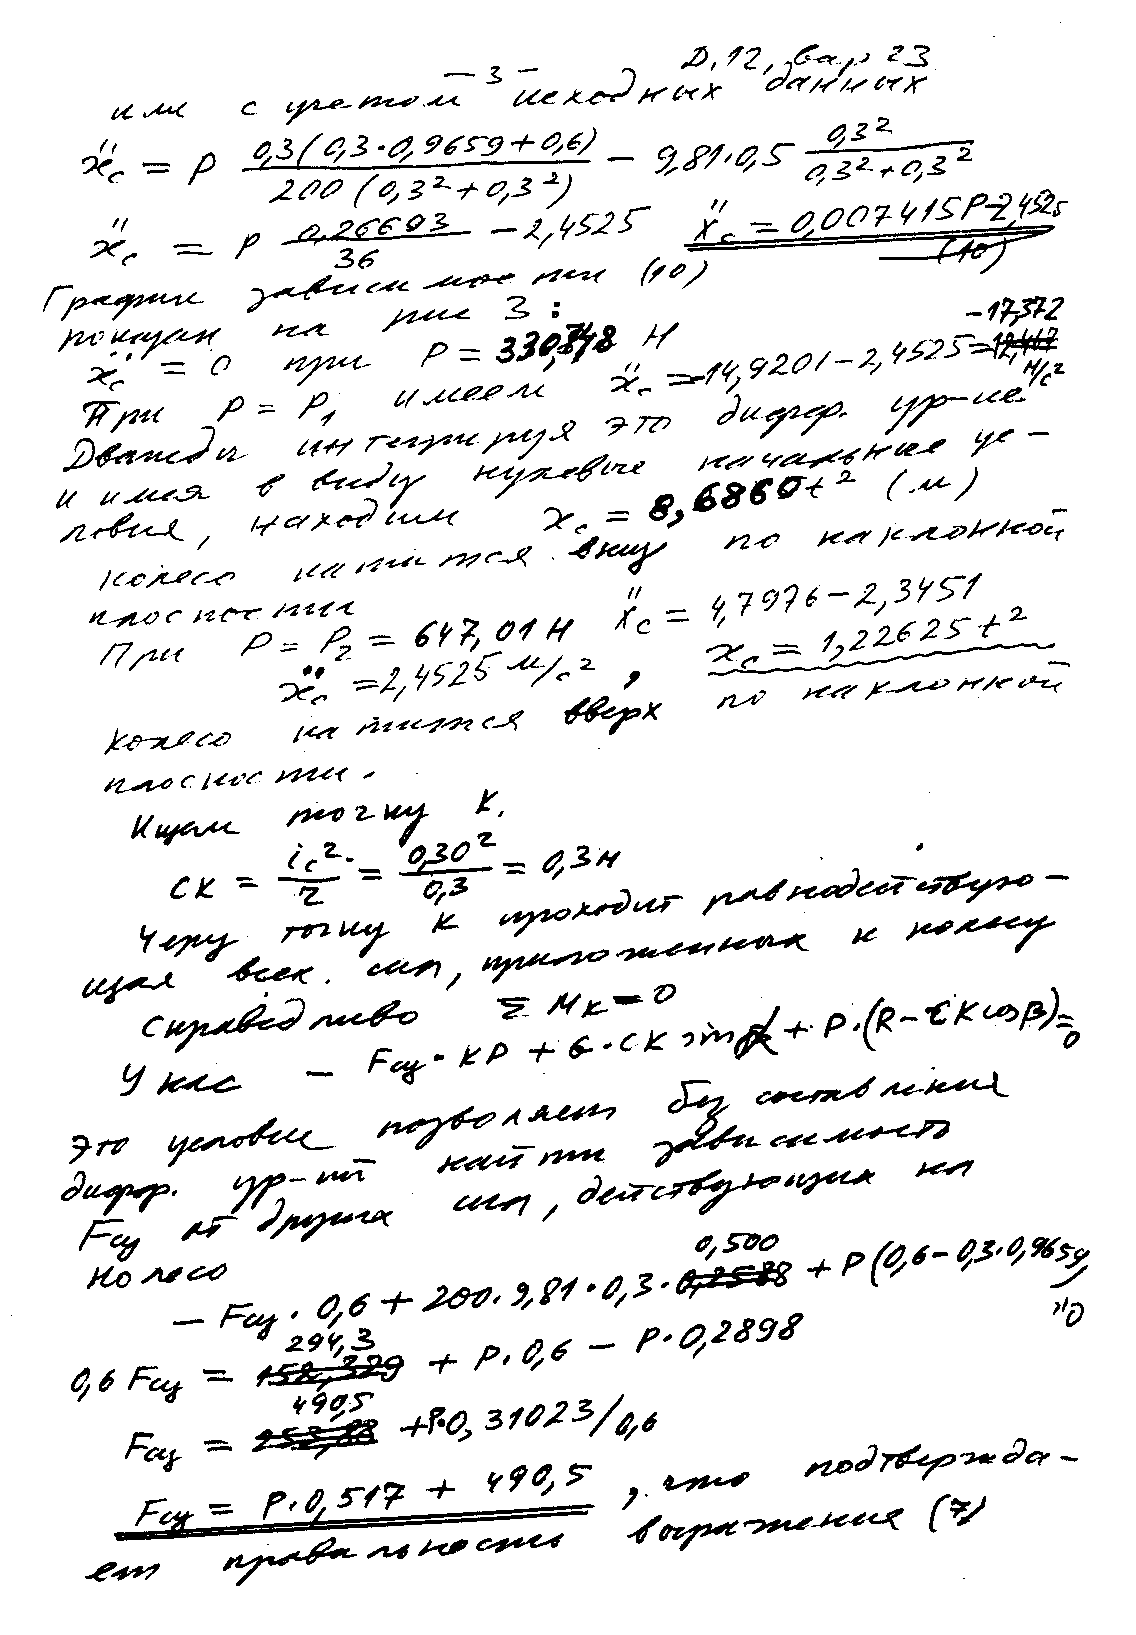 Д.12, вар 23
– 3 –
или с учетом исходных данных
ẍc = P 0,3(0,3·0,9659+0,6) / 200(0,3²+0,3²) – 9,81·0,5 0,3² / 0,3²+0,3²
ẍc = P 0,26693 / 36 – 2,4525 ẍc = 0,007415P–2,4525
(10)
График зависимости (10)
показан на рис 3:
ẍc = 0 при P = 330,748 Н
–17,372
При P = P₁ имеем ẍc = –14,9201 – 2,4525 = 12,467 м/с²
Дважды интегрируя это дифф. ур-ие
и имея в виду нулевые начальные ус–
ловия, находим xc = 8,6860t² (м)
колесо катится вниз по наклонной
плоскости
При P = P₂ = 647,01 Н ẍc = 4,7976 – 2,3451
ẍc = 2,4525 м/с², xc = 1,22625 t²
колесо катится вверх по наклонной
плоскости.
Ищем точку К.
CK = ic² / r = 0,30² / 0,3 = 0,3 м
Через точку К проходит равнодействую–
щая всех сил, приложенных к колесу
Справедливо Σ Mк = 0
У нас – Fсц · KP + G · CK sin α + P·(R – CK cos β) = 0
Это условие позволяет без составления
дифф. ур-ий найти зависимость
Fсц от других сил, действующих на
колесо
0,500
– Fсц · 0,6 + 200·9,81·0,3·0,2588 + P(0,6 – 0,3·0,9659) = 0
294,3
0,6 Fсц = 152,329 + P·0,6 – P·0,2898
490,5
Fсц = 253,88 + P·0,31023/0,6
Fсц = P·0,517 + 490,5, что подтвержда–
ет правильность выражение (7)